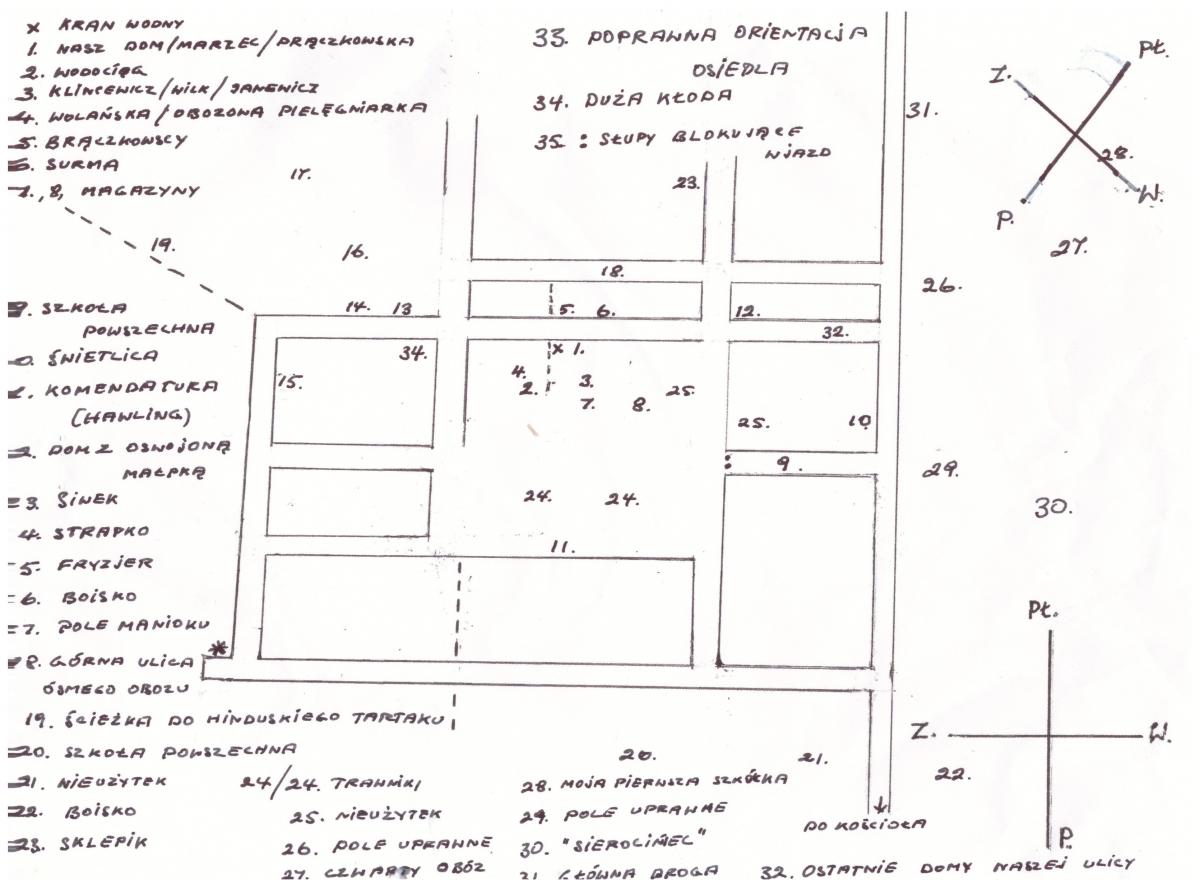 x KRAN WODNY
1. NASZ DOM/MARZEC/PRĄCZKOWSKA
2. WODOCIĄG
3. KLINCEWICZ/WILK/JANEWICZ
4. WOLAŃSKA/OBOZOWA PIELĘGNIARKA
5. BRĄCZKOWSCY
6. SURMA
7., 8, MAGAZYNY
9. SZKOŁA
POWSZECHNA
0. ŚWIETLICA
1. KOMENDATURA
(HAWLING)
2. DOM Z OSWOJONĄ
MAŁPKĄ
3. SIWEK
4. STRAPKO
5. FRYZJER
6. BOISKO
7. POLE MANIOKU
8. GÓRNA ULICA
ÓSMEGO OBOZU
19. ŚCIEŻKA DO HINDUSKIEGO TARTAKU
20. SZKOŁA POWSZECHNA
21. NIEUŻYTEK
22. BOISKO
23. SKLEPIK
24/24. TRAWNIKI
25. NIEUŻYTEK
26. POLE UPRAWNE
27. CZWARTY OBÓZ
28. MOJA PIERWSZA SZKÓŁKA
29. POLE UPRAWNE
30. "SIEROCINIEC"
31. GŁÓWNA DROGA
32. OSTATNIE DOMY NASZEJ ULICY
33. POPRAWNA ORIENTACJA
OSIEDLA
34. DUŻA KŁODA
35 : SŁUPY BLOKUJĄCE
WJAZD
17.
16.
19.
14. 13
23.
18.
5. 6.
12.
32.
34.
15.
x 1.
4.
2.
3.
7.
8.
25.
25.
10
9.
24.
24.
11.
*
20.
21.
22.
DO KOŚCIOŁA
31.
26.
27.
28.
29.
30.
PŁ.
Z.
W.
P.
PŁ.
Z.
W.
P.